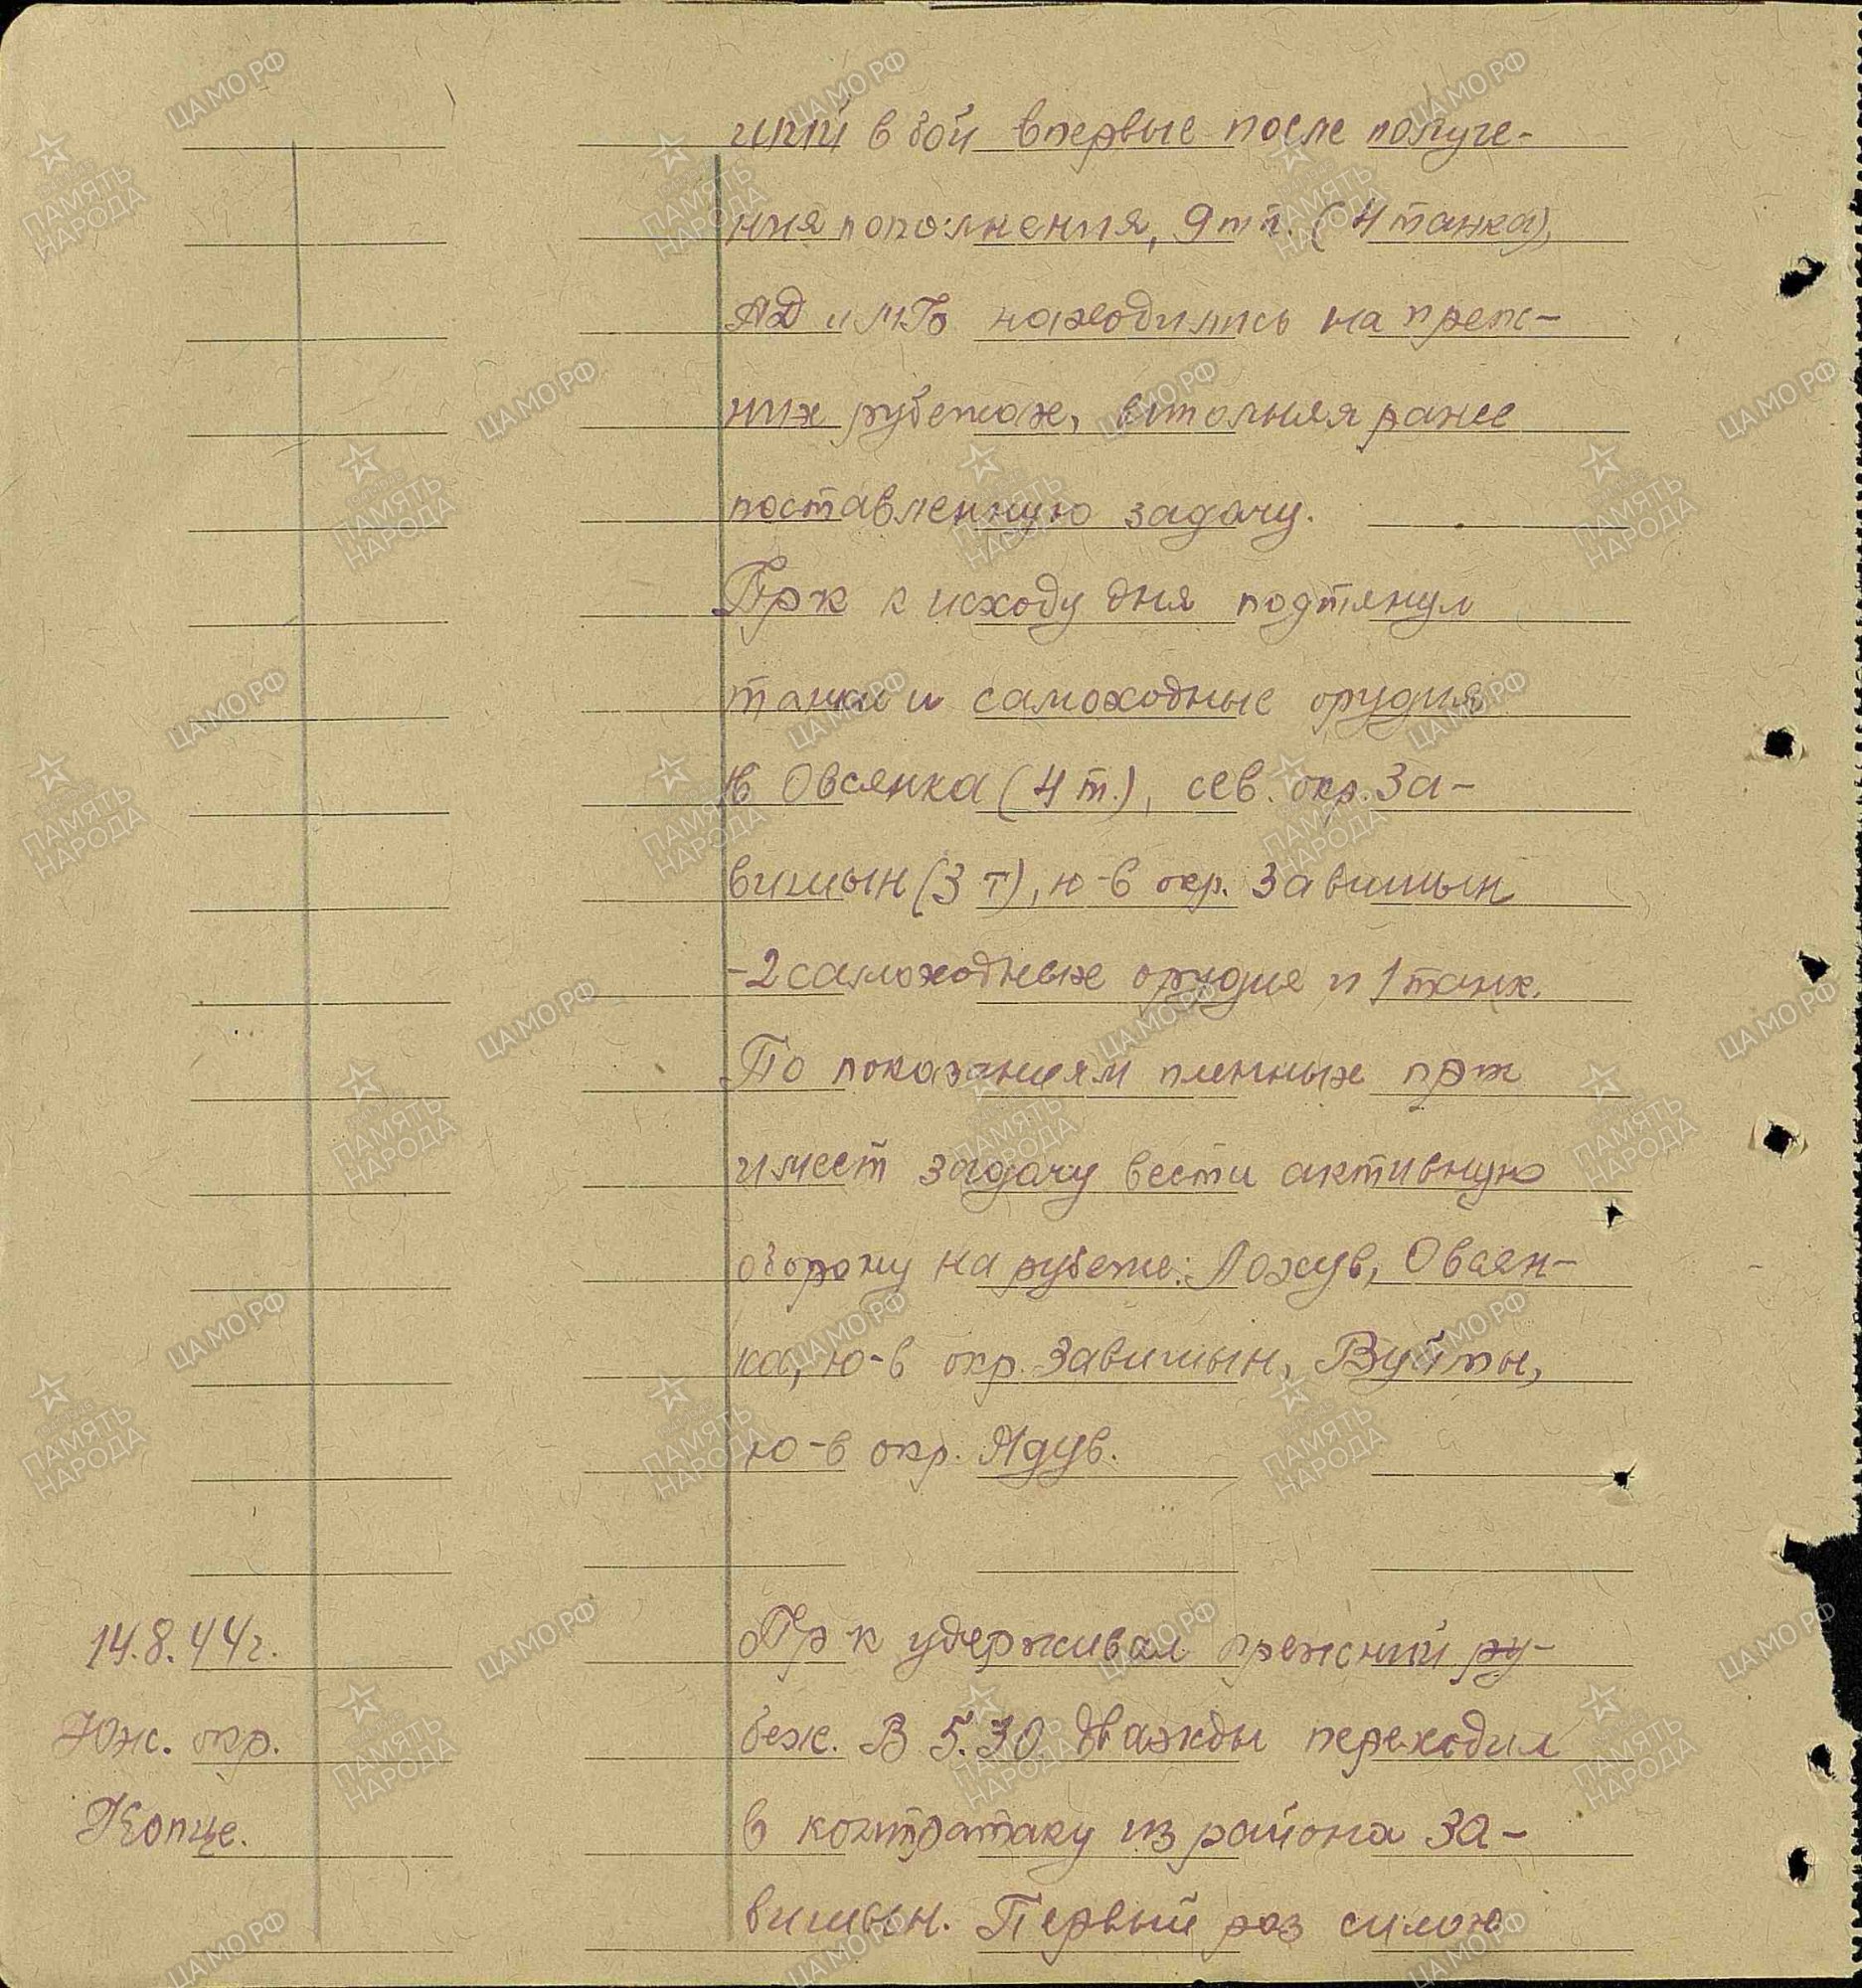 ший в бой впервые после получе-
ния пополнения, 9 тп. (4 танка),
АД и МПб находились на преж-
них рубежах, выполняя ранее
поставленную задачу.
Пр-к к исходу дня подтянул
танки и самоходные орудия
Овсянка (4 т.), сев. окр. За-
вишын (3 т), ю-в окр. Завишын
-2 самоходных орудия и 1 танк.
По показаниям пленных пр-к
имеет задачу вести активную
оборону на рубеже: Лохув, Овсян-
ка, ю-в окр. Завишын, Вуйты,
ю-в окр. Ядув.
14.8.44г.
Юж. окр.
Копце.
Пр-к удерживал прежний ру-
беж. В 5.30 дважды переходил
в контратаку из района За-
вишын. Первый раз силою
ЦАМО РФ
ПАМЯТЬ НАРОДА